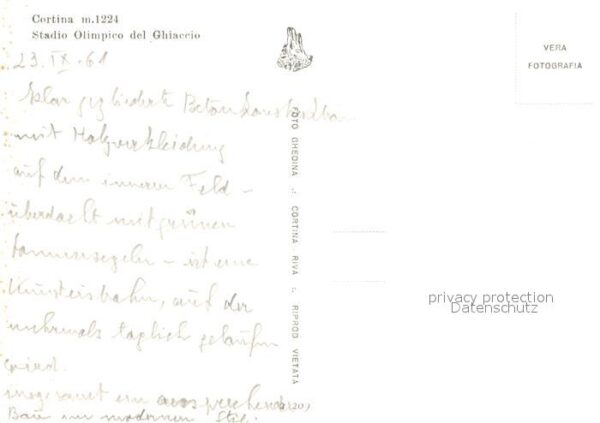 Cortina m.1224
Stadio Olimpico del Ghiaccio
23.IX.61
klar gegliederte Betonkonstruktion
mit Holzverkleidung
auf dem inneren Feld -
überdacht mit grünen
Sonnensegeln - ist eine
Kunsteisbahn, auf der
mehrmals täglich gelaufen
wird.
insgesamt ein ansprechender
Bau im modernen Stil.
FOTO GHEDINA .:. CORTINA RIVA .:. RIPROD VIETATA
VERA
FOTOGRAFIA
privacy protection
Datenschutz